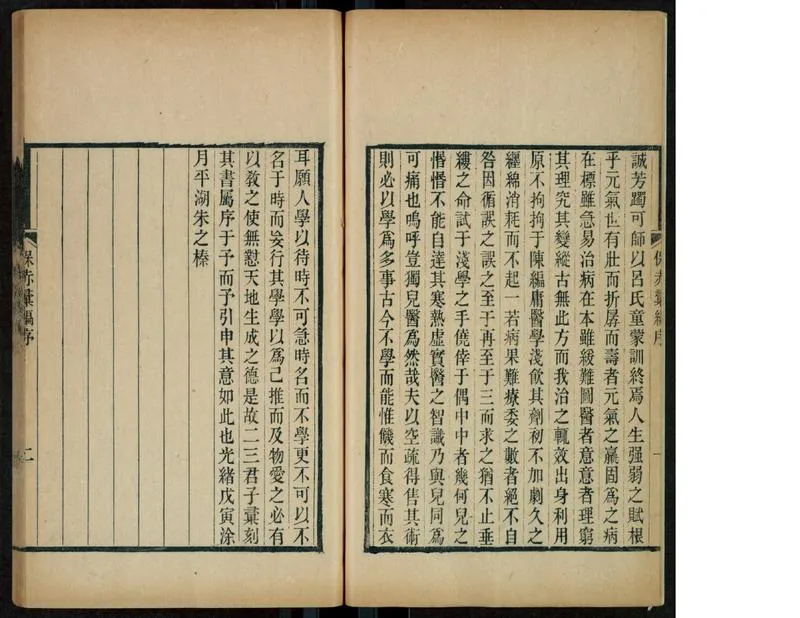 誠芳躅可師以呂氏童蒙訓終焉人生强弱之賦根
乎元氣世有壯而折孱而壽者元氣之羸固爲之病
在標雖急易治病在本雖緩難圖醫者意意者理窮
其理究其變縱古無此方而我治之輒效出身利用
原不拘拘于陳編庸醫學淺飮其劑初不加劇久之
纏綿消耗而不起一若病果難療委之數者絕不自
咎因循誤之誤之至于再至于三而求之猶不止垂
縷之命試于淺學之手僥倖于偶中中者幾何兒之
惛惛不能自達其寒熱虛實醫之智識乃與兒同爲
可痛也嗚呼豈獨兒醫爲然哉夫以空疏得售其術
則必以學爲多事古今不學而能惟饑而食寒而衣
保赤彙編序
一
耳願人學以待時不可急時名而不學更不可以不
名于時而妄行其學學以爲己推而及物愛之必有
以敎之使無懟天地生成之德是故二三君子彙刻
其書屬序于予而予引申其意如此也光緒戊寅涂
月平湖朱之榛
保赤彙編序
二